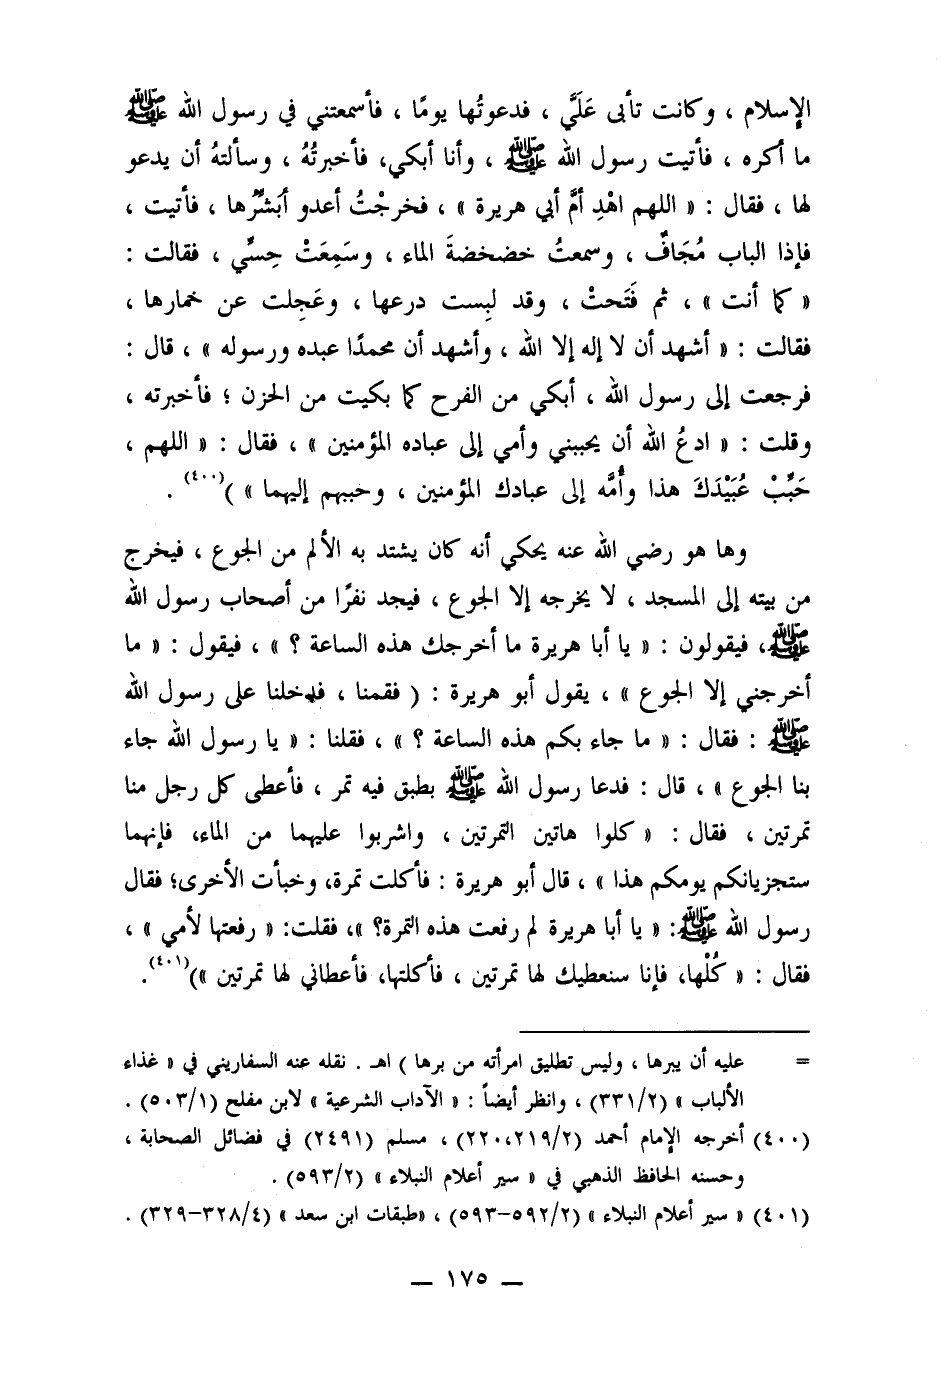 الإسلام ، وكانت تأبى عَلَيَّ ، فدعوتُها يومًا ، فأسمعتني في رسول الله ﷺ
ما أكره ، فأتيت رسول الله ﷺ ، وأنا أبكي، فأخبرتُهُ ، وسألتهُ أن يدعو
لها ، فقال : « اللهم اهْدِ أمَّ أبي هريرة » ، فخرجْتُ أعدو أبَشِّرُها ، فأتيت ،
فإذا الباب مُجَافٌ ، وسمعتُ خضخضةَ الماء ، وسَمِعَتْ حِسِّي ، فقالت :
« كما أنت » ، ثم فَتَحتْ ، وقد لبِست درعها ، وعَجِلت عن خمارها ،
فقالت : « أشهد أن لا إله إلا الله ، وأشهد أن محمدًا عبده ورسوله » ، قال :
فرجعت إلى رسول الله ، أبكي من الفرح كما بكيت من الحزن ؛ فأخبرته ،
وقلت : « ادعُ الله أن يحببني وأمي إلى عباده المؤمنين » ، فقال : « اللهم ،
حَبِّبْ عُبَيْدَكَ هذا وأُمَّه إلى عبادك المؤمنين ، وحببهم إليهما » )(٤٠٠) .
وها هو رضي الله عنه يحكي أنه كان يشتد به الألم من الجوع ، فيخرج
من بيته إلى المسجد ، لا يخرجه إلا الجوع ، فيجد نفرًا من أصحاب رسول الله
ﷺ، فيقولون : « يا أبا هريرة ما أخرجك هذه الساعة ؟ » ، فيقول : « ما
أخرجني إلا الجوع » ، يقول أبو هريرة : ( فقمنا ، فدخلنا على رسول الله
ﷺ : فقال : « ما جاء بكم هذه الساعة ؟ » ، فقلنا : « يا رسول الله جاء
بنا الجوع » ، قال : فدعا رسول الله ﷺ بطبق فيه تمر ، فأعطى كل رجل منا
تمرتين ، فقال : « كلوا هاتين التمرتين ، واشربوا عليهما من الماء، فإنهما
ستجزيانكم يومكم هذا » ، قال أبو هريرة : فأكلت تمرة، وخبأت الأخرى؛ فقال
رسول الله ﷺ: « يا أبا هريرة لم رفعت هذه التمرة؟ »، فقلت: « رفعتها لأمي » ،
فقال : « كُلْها، فإنا سنعطيك لها تمرتين ، فأكلتها، فأعطاني لها تمرتين »)(٤٠١).
= عليه أن يبرها ، وليس تطليق امرأته من برها ) اهـ . نقله عنه السفاريني في « غذاء
الألباب » (٣٣١/٢) ، وانظر أيضاً : « الآداب الشرعية » لابن مفلح (٥٠٣/١) .
(٤٠٠) أخرجه الإمام أحمد (٢٢٠،٢١٩/٢) ، مسلم (٢٤٩١) في فضائل الصحابة ،
وحسنه الحافظ الذهبي في « سير أعلام النبلاء » (٥٩٣/٢) .
(٤٠١) « سير أعلام النبلاء » (٥٩٢/٢–٥٩٣) ، «طبقات ابن سعد » (٣٢٨/٤–٣٢٩) .
— ١٧٥ —